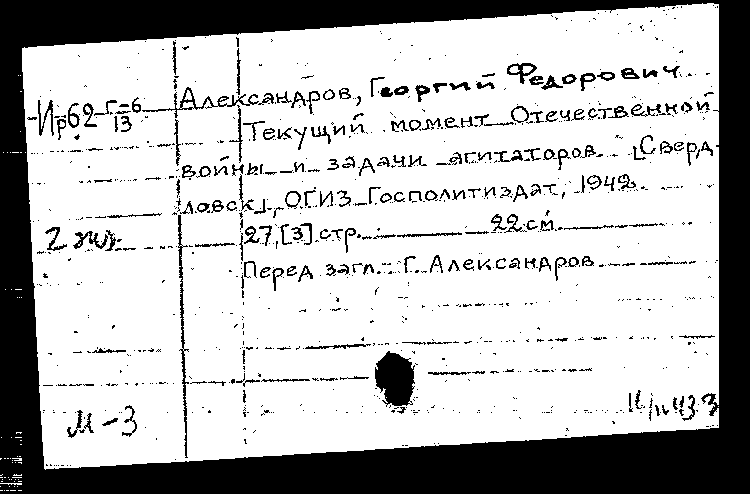 Ир62 Г=6/13
Александров, Георгий Федорович.
Текущий момент Отечественной
войны и задачи агитаторов. [Сверд-
ловск], ОГИЗ Госполитиздат, 1942.
27,[3] стр. 22 см.
2 экз.
Перед загл.: Г. Александров
М-3